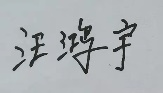 汪鸿宇